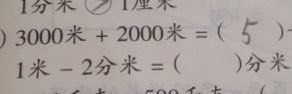 1分米 > 1厘米
) 3000米 + 2000米 = ( 5 )
1米 - 2分米 = ( )分米